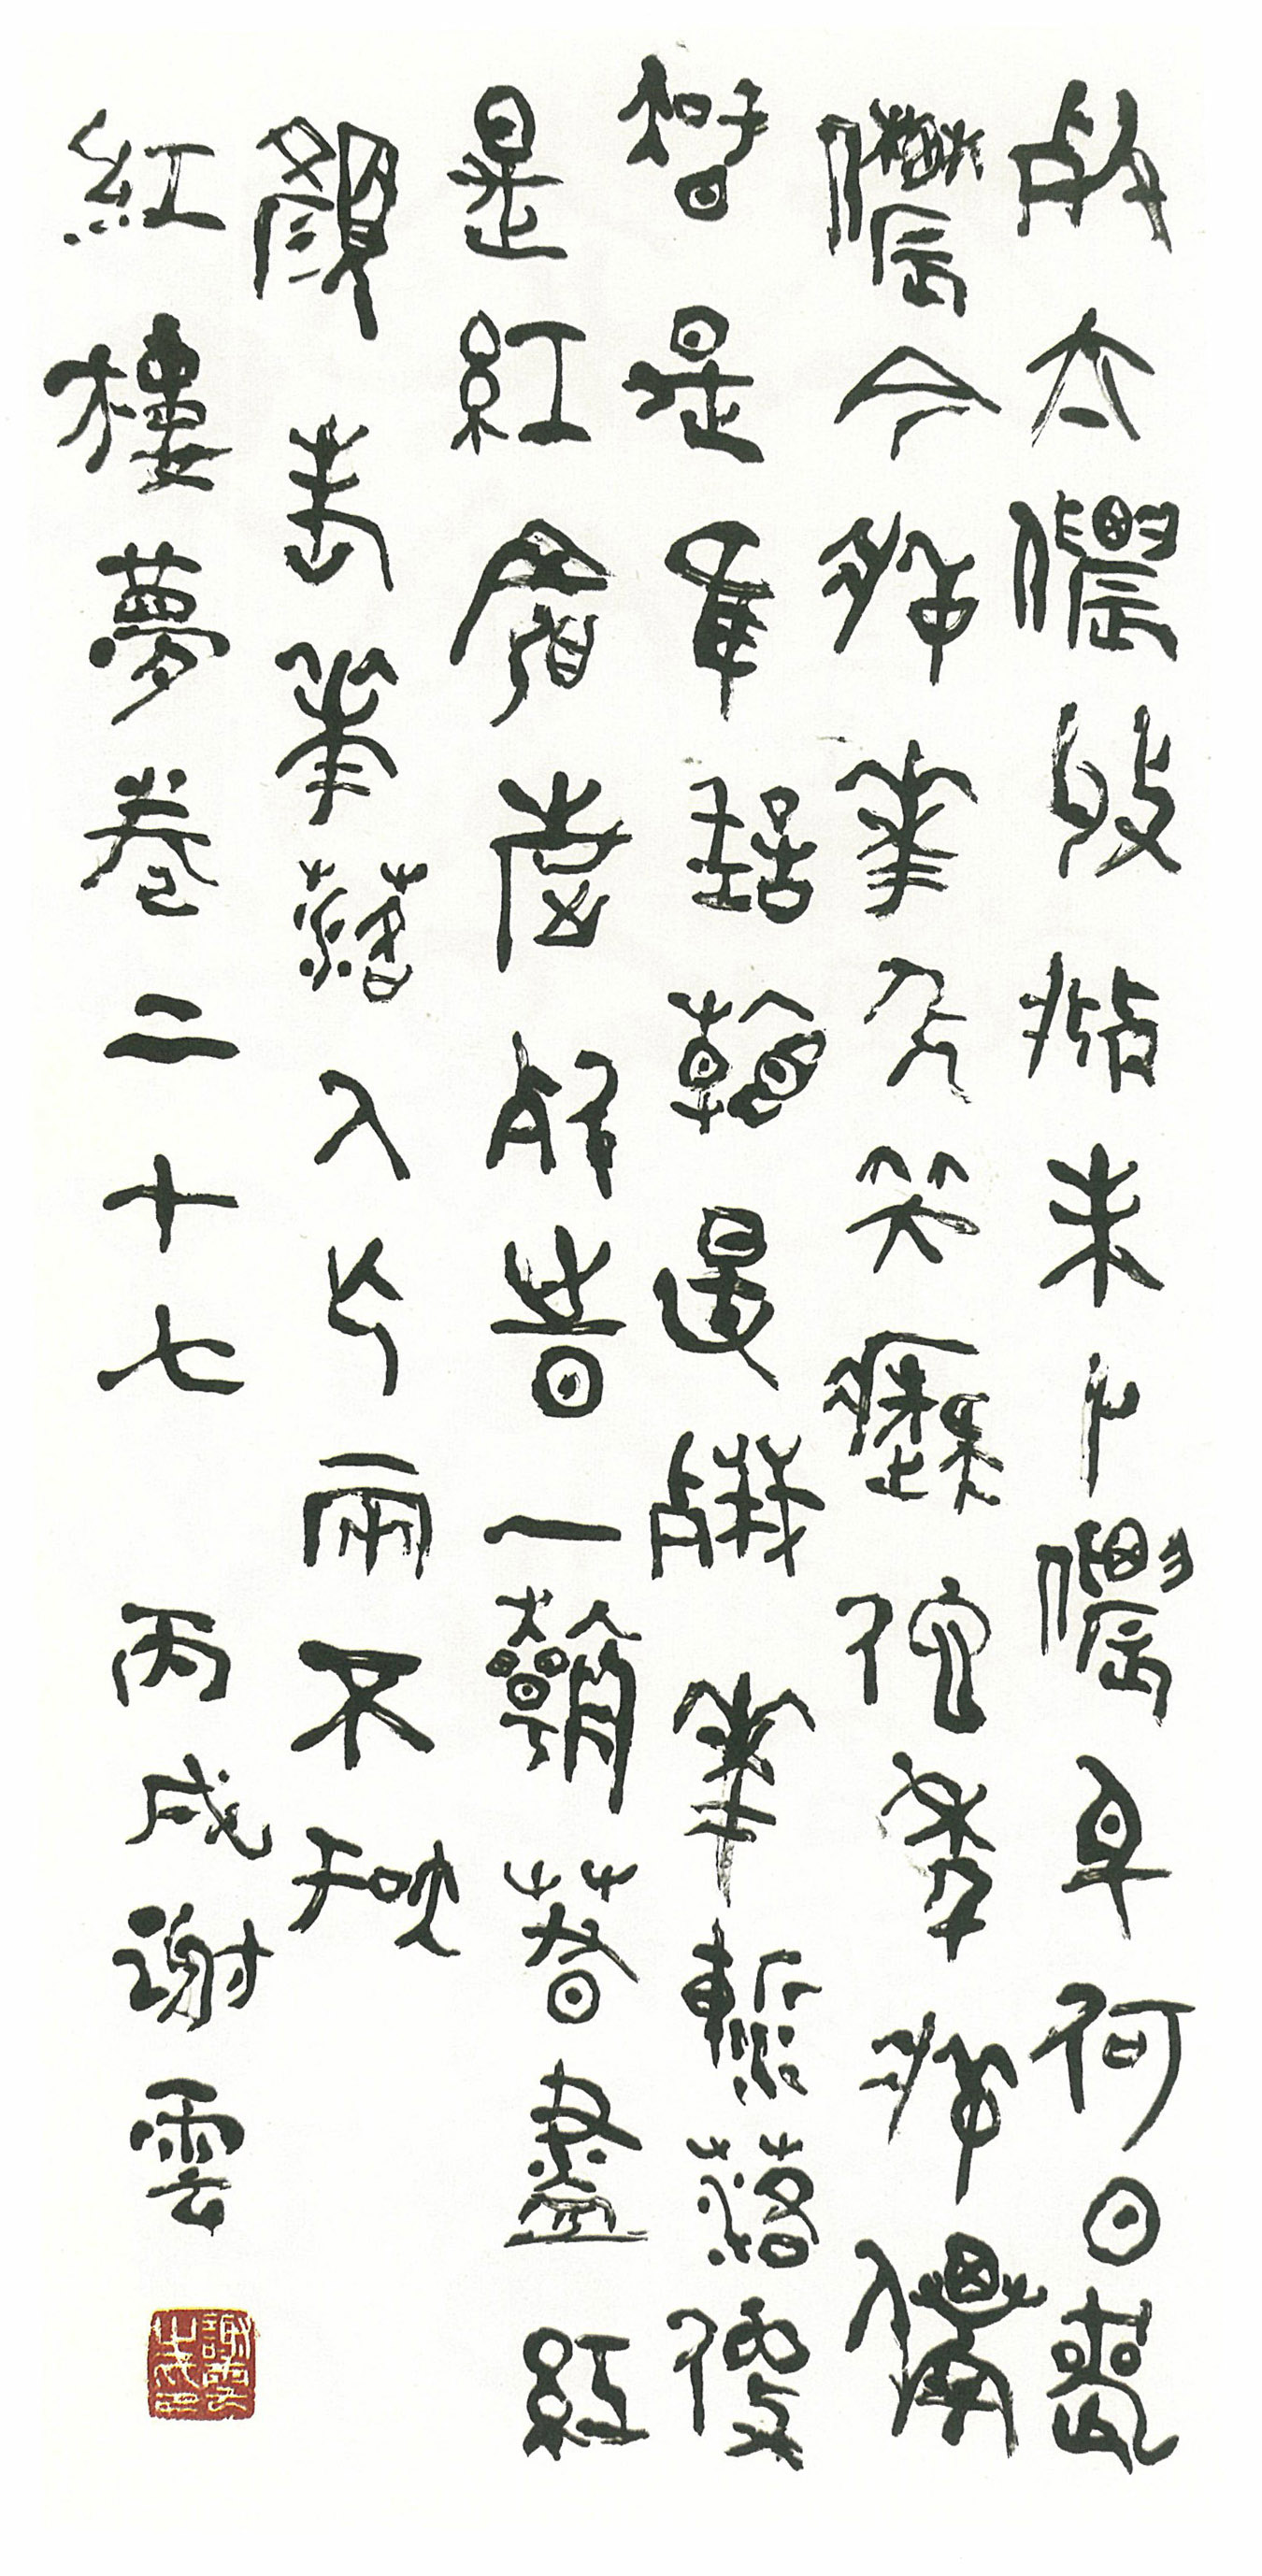 死去儂收葬未卜儂身何日喪
儂今葬花人笑癡他年葬儂
知是誰試看春殘花漸落便
是紅顏老死時一朝春盡紅
顏老花落人亡兩不知
紅樓夢卷二十七 丙戌謝雲